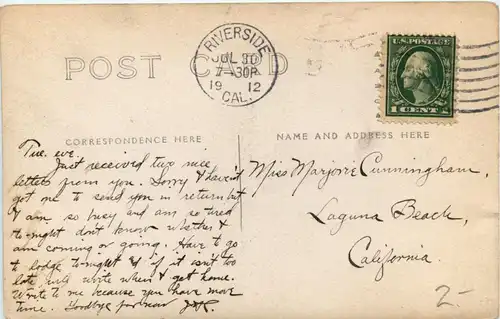 POST CARD
RIVERSIDE
JUL 30
7-30P
19 12
CAL.
U.S. POSTAGE
1 CENT 1
CORRESPONDENCE HERE
NAME AND ADDRESS HERE
Tue. eve.
Just received two nice
letters from you. Sorry I haven't
got one to send you in return but
I am so busy and am so tired
to-night don't know whether I
am coming or going. Have to go
to lodge to-night & if it isn't too
late will write when I get home.
Write to me because you have more
time. Goodbye for now
Miss Marjorie Cunningham,
Laguna Beach,
California.
2-